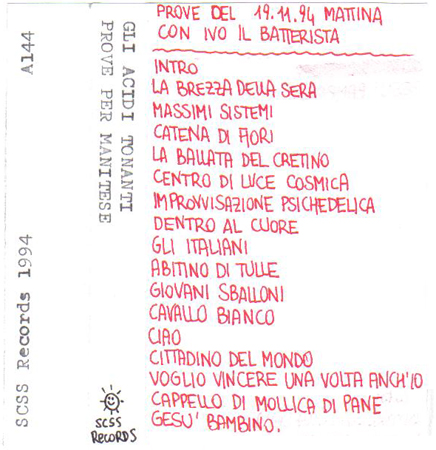 A144
SCSS Records 1994
GLI ACIDI TONANTI
PROVE PER MANITESE
SCSS
RECORDS
PROVE DEL 19.11.94 MATTINA
CON IVO IL BATTERISTA
INTRO
LA BREZZA DELLA SERA
MASSIMI SISTEMI
CATENA DI FIORI
LA BALLATA DEL CRETINO
CENTRO DI LUCE COSMICA
IMPROVVISAZIONE PSICHEDELICA
DENTRO AL CUORE
GLI ITALIANI
ABITINO DI TULLE
GIOVANI SBALLONI
CAVALLO BIANCO
CIAO
CITTADINO DEL MONDO
VOGLIO VINCERE UNA VOLTA ANCH'IO
CAPPELLO DI MOLLICA DI PANE
GESU' BAMBINO.